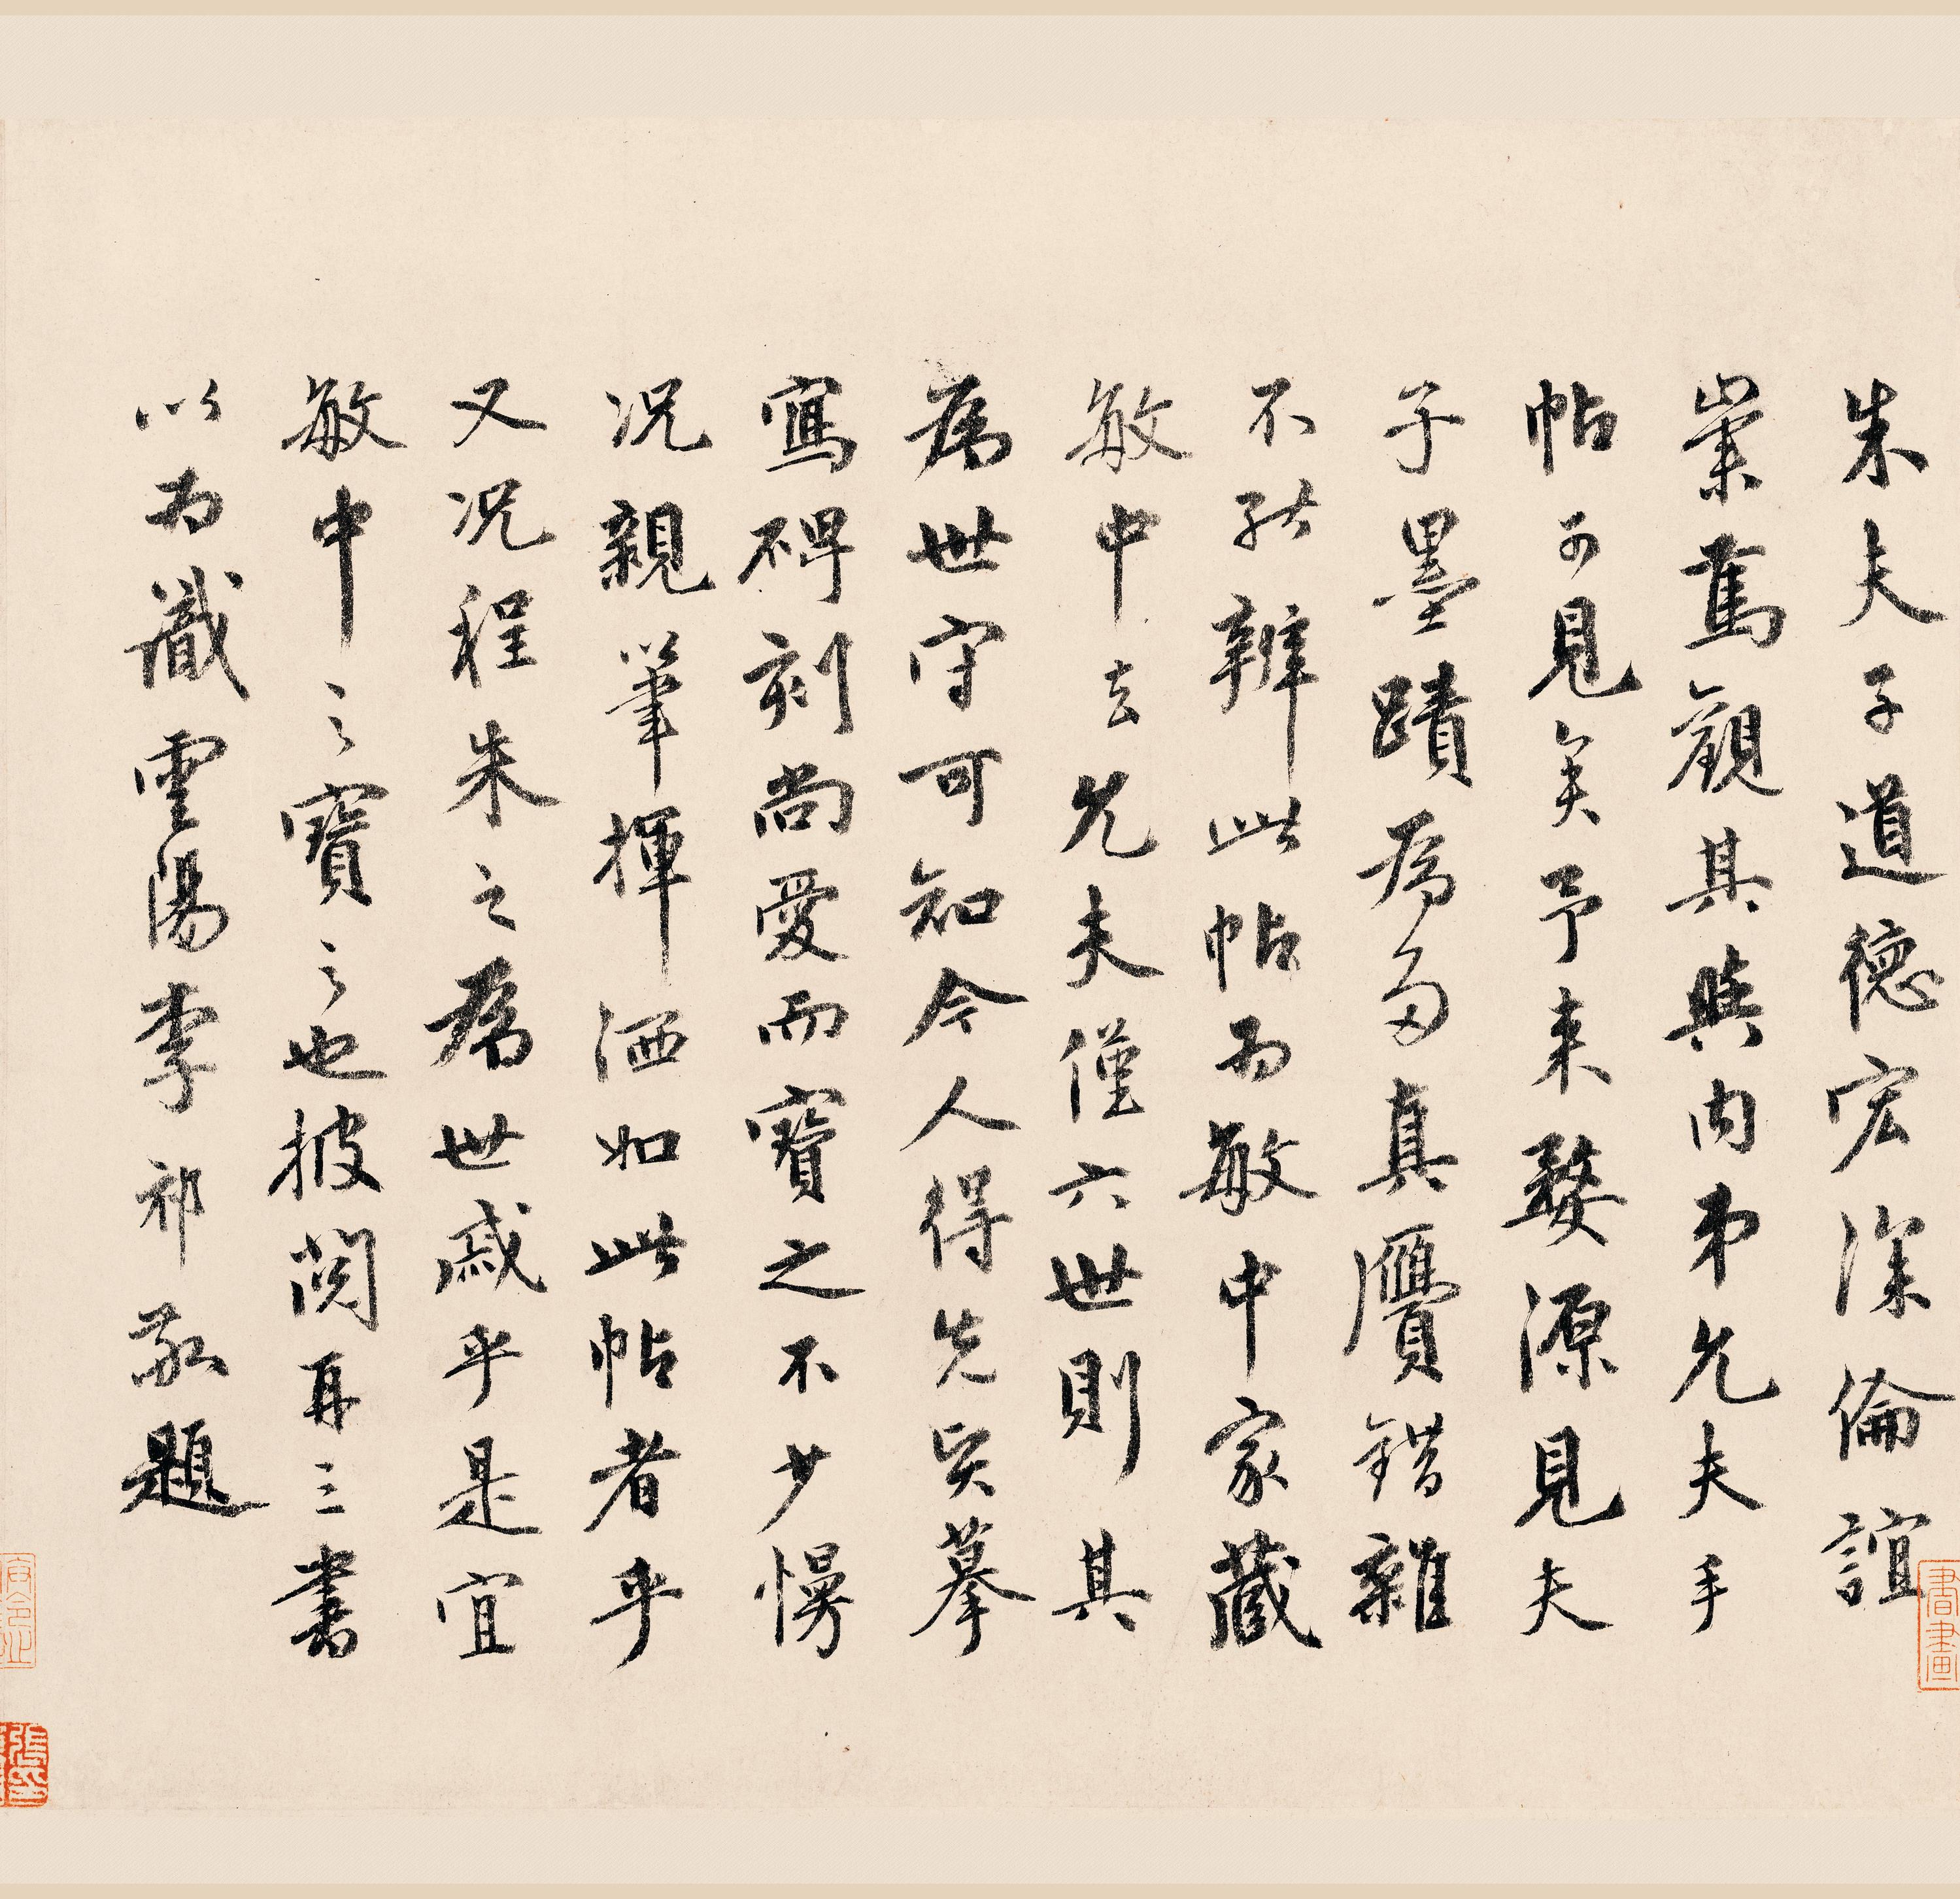 朱夫子道德宏深倫誼
崇篤觀其與内弟允夫手
帖可見矣予来婺源見夫
子墨蹟為多真贗錯雜
不能辨此帖而敏中家藏
敏中去允夫僅六世則其
為世守可知今人得先賢摹
寫碑刻尚愛而寳之不少慢
况親筆揮洒如此帖者乎
又况程朱之為世戚乎是宜
敏中之寳之也披閲再三書
以為識雲陽李祁敬題
書畫